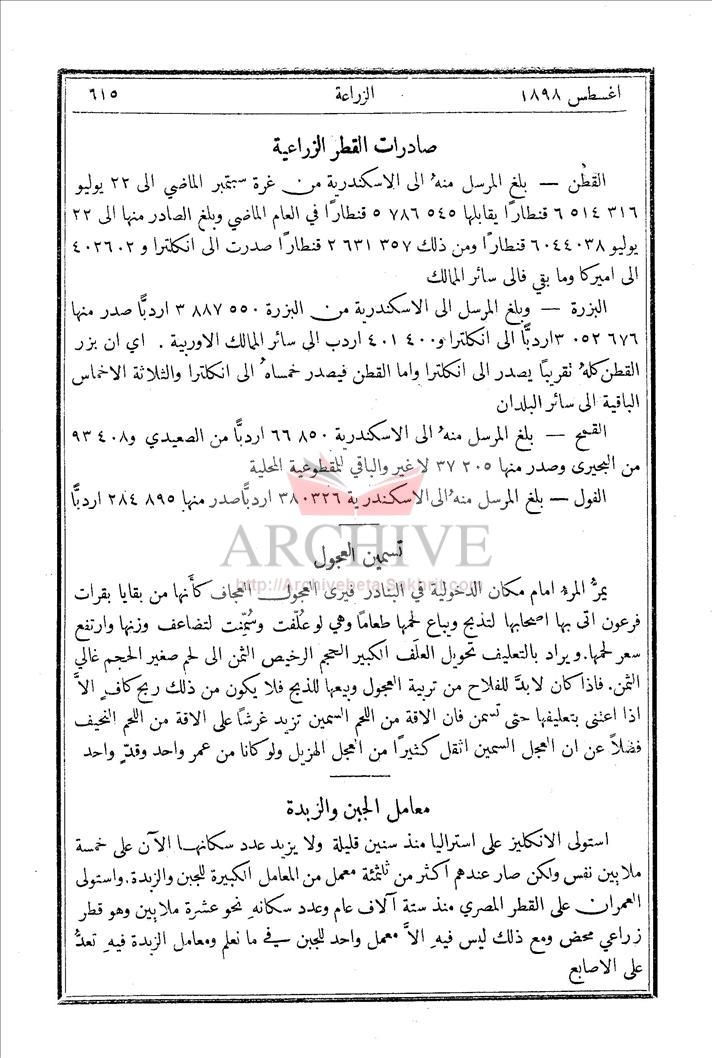 اغسطس ١٨٩٨ الزراعة ٦١٥
صادرات القطر الزراعية
القطن — بلغ المرسل منهُ الى الاسكندرية من غرة سبتمبر الماضي الى ٢٢ يوليو
٣١٦ ٥١٤ ٦ قنطارًا يقابلها ٥٤٥ ٧٨٦ ٥ قنطارًا في العام الماضي وبلغ الصادر منها الى ٢٢
يوليو ٦٠٤٤٠٣٨ قنطارًا ومن ذلك ٣٥٧ ٦٣١ ٢ قنطارًا صدرت الى انكلترا و ٤٠٢٦٠٢
الى اميركا وما بقي فالى سائر الممالك
البزرة — وبلغ المرسل الى الاسكندرية من البزرة ٥٥٠ ٨٨٧ ٣ اردبًّا صدر منها
٦٧٦ ٠٥٢ ٣اردبًّا الى انكلترا و٤٠٠ ٤٠١ اردب الى سائر الممالك الاوربية . اي ان بزر
القطن كلهُ تقريبًا يصدر الى انكلترا واما القطن فيصدر خمساهُ الى انكلترا والثلاثة الاخماس
الباقية الى سائر البلدان
القمح — بلغ المرسل منهُ الى الاسكندرية ٨٥٠ ٦٦ اردبًّا من الصعيدي و٤٠٨ ٩٣
من البحيرى وصدر منها ٢٠٥ ٣٧ لا غير والباقي للمقطوعية المحلية
الفول — بلغ المرسل منهُ الى الاسكندرية ٣٨٠٣٢٦ اردبًّا صدر منها ٨٩٥ ٢٨٤ اردبًّا
ARCHIVE
http://Archivebeta.Sakhrit.com
تسمين العجول
يمرُّ المرءُ امام مكان الدخولية في البنادر فيرى العجول العجاف كأنها من بقايا بقرات
فرعون اتى بها اصحابها لتذبح ويباع لحمها طعامًا وهي لو عُلّفت وسُمّنت لتضاعف وزنها وارتفع
سعر لحمها. ويراد بالتعليف تحويل العلَف الكبير الحجم الرخيص الثمن الى لحم صغير الحجم غالي
الثمن. فاذا كان لابدَّ للفلاح من تربية العجول وبيعها للذبح فلا يكون من ذلك ربح كافٍ الاَّ
اذا اعتنى بتعليفها حتى تسمن فان الاقة من اللحم السمين تزيد غرشًا على الاقة من اللحم النحيف
فضلاً عن ان العجل السمين اثقل كثيرًا من العجل الهزيل ولو كانا من عمر واحد وقدٍّ واحد
معامل الجبن والزبدة
استولى الانكليز على استراليا منذ سنين قليلة ولا يزيد عدد سكانها الآن على خمسة
ملايين نفس ولكن صار عندهم اكثر من ثلثمئة معمل من المعامل الكبيرة للجبن والزبدة. واستولى
العمران على القطر المصري منذ ستة آلاف عام وعدد سكانهِ نحو عشرة ملايين وهو قطر
زراعي محض ومع ذلك ليس فيهِ الاَّ معمل واحد للجبن في ما نعلم ومعامل الزبدة فيهِ تعدُّ
على الاصابع